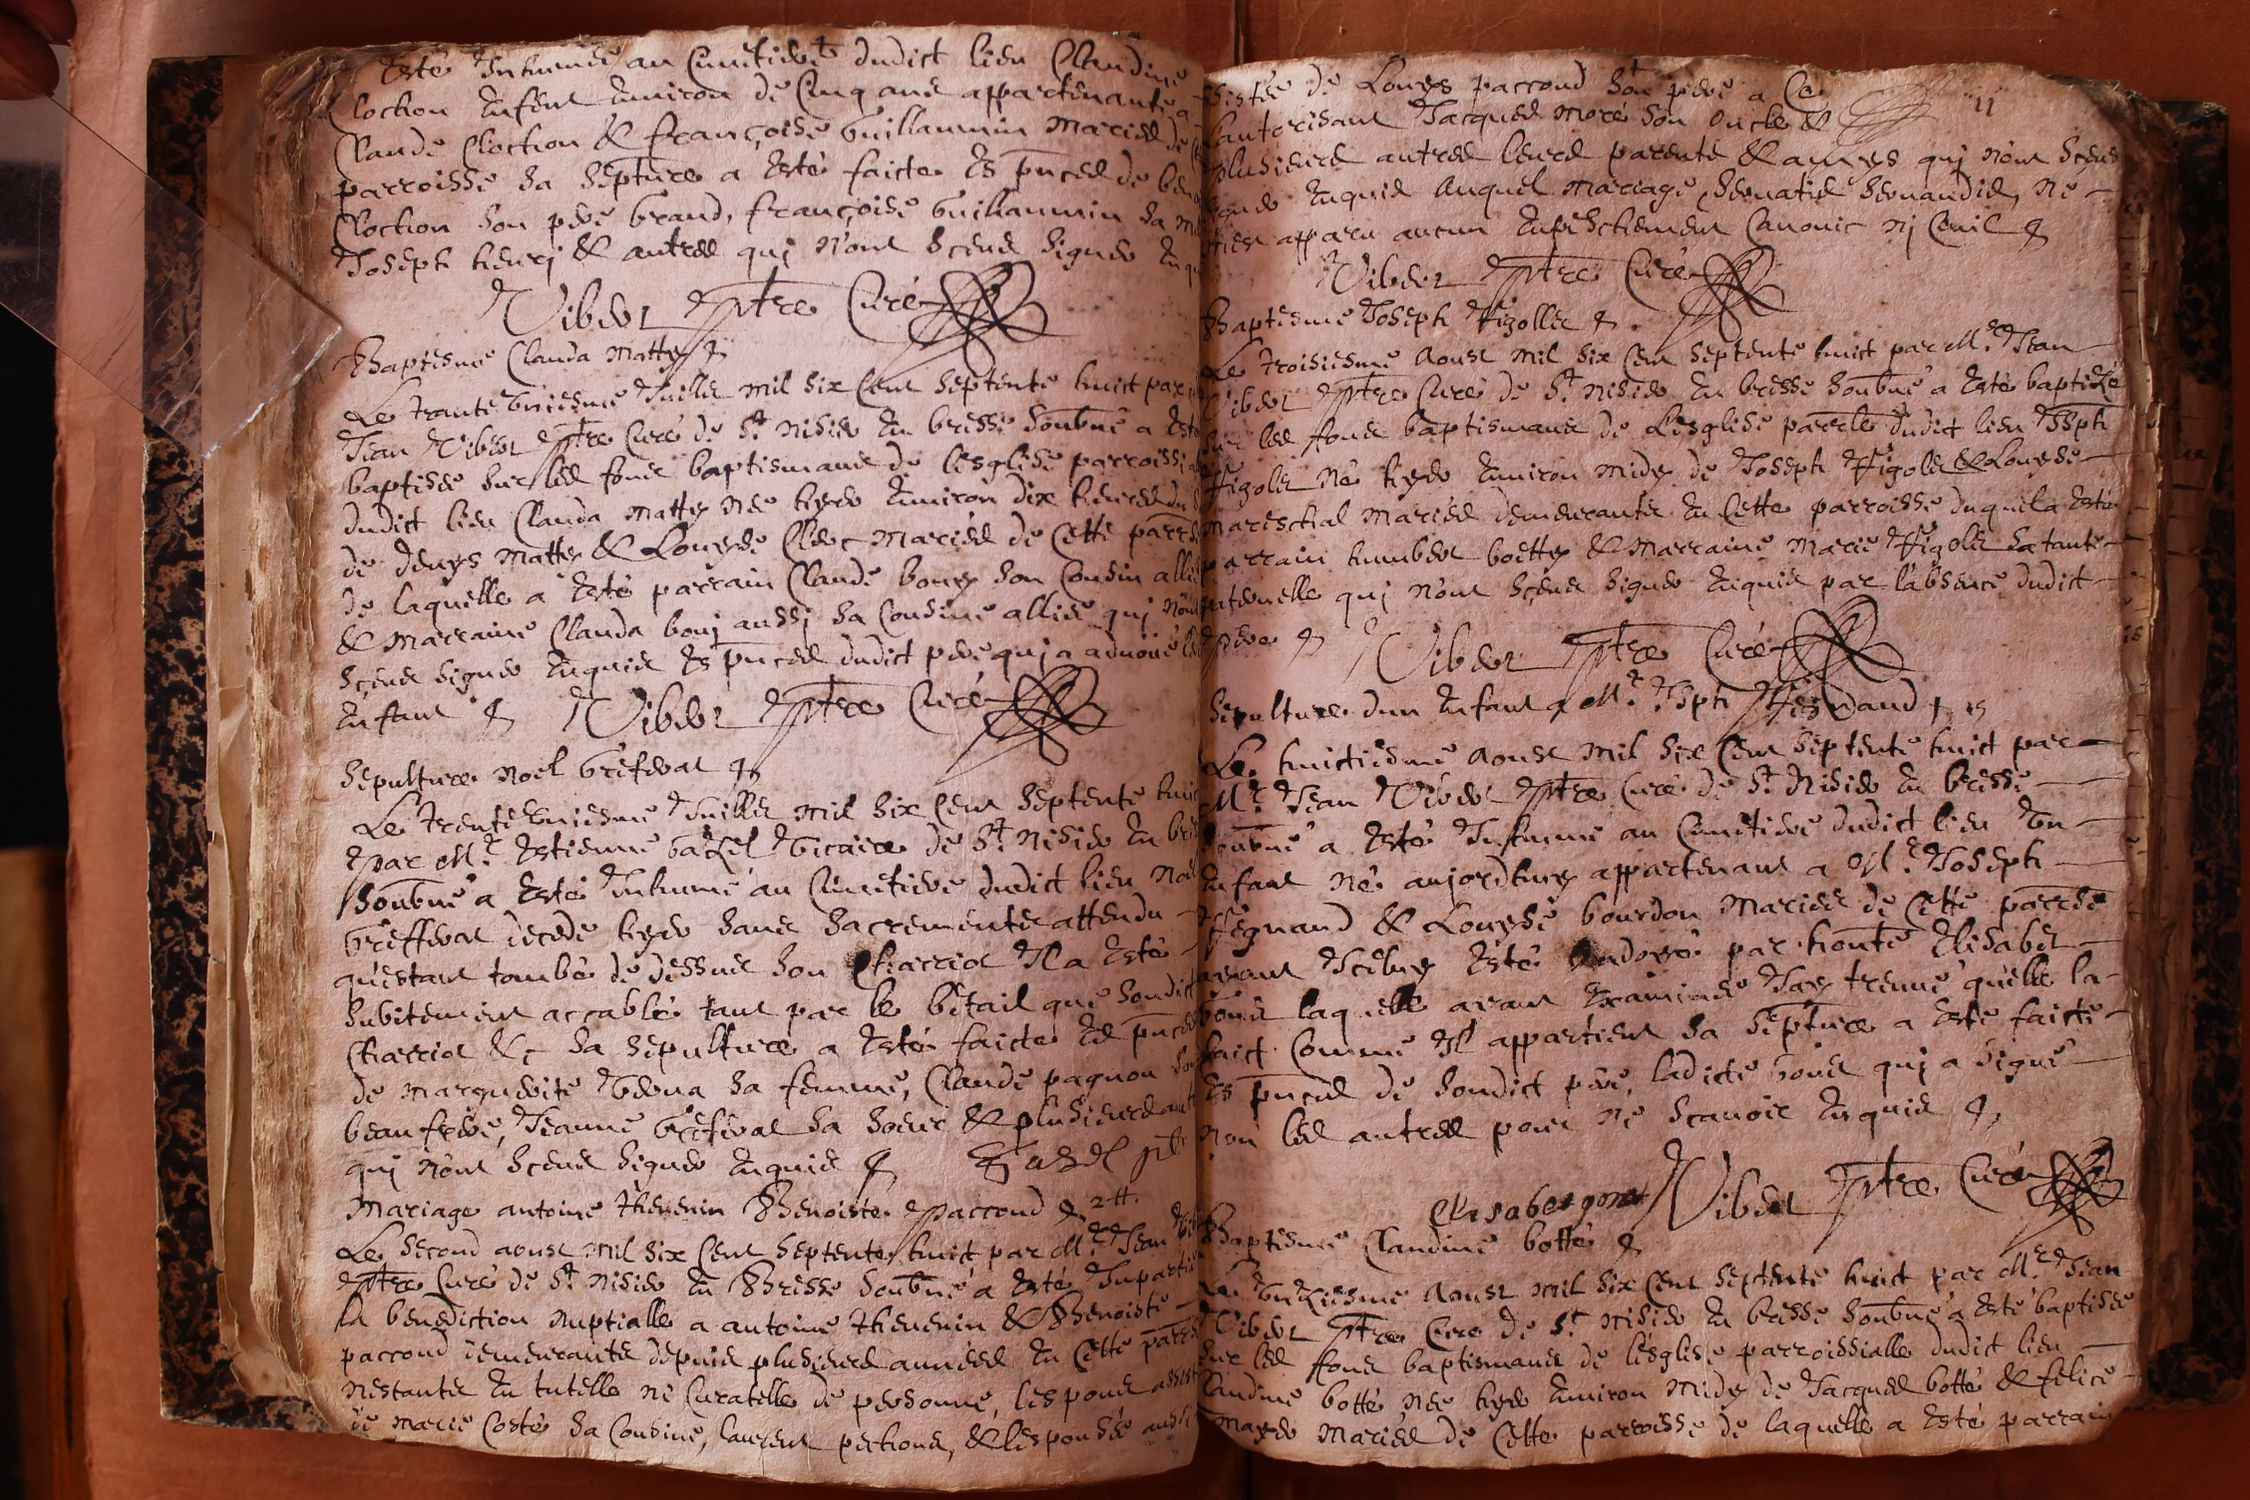 Esté Inhumée au Cimetiere dudict lieu Claudine
Clochon Enfent Environ de Cinq ans appartenante a
Claude Clochon & françoise Guillaumin Mariés de
parroisse Sa Septure a Esté faicte Es pnces de
Clochon Son pere Grand, françoise Guillaumin Sa
Joseph henrj & autres quj n'ont Sceus Signer
Vibert ptre Curé
Baptesme Clauda Mattey
Le trante Uniesme Juillet mil six Cent Septente huict par
Jean Vibert ptre Curé de St Nisier En bresse Soubné a Esté
baptisée sur les fons baptismaus de lesglise
dudict lieu Clauda Mattey Née hyer Environ dix heures du
de Denys Mattey & Louyse Clerc Mariés de Cette
de laquelle a Esté parrain Claude bouy Son Cousin allié
& Marraine Clauda bouj aussj Sa Cousine alliée quj n'ont
Sceus Signer Enquis Es pnces dudict pere quj a advoué
Enfant Vibert ptre Curé
Sepulture Noel Greferat
Le trente Uniesme Juillet mil six Cent Septente huict
par Mr Estienne Gazel Vicaire de St Nisier En
Soubné a Esté Inhumé au Cimetiere dudict lieu Noel
Grefferat decedé hyer Sans Sacrements attendu
qu'estant tombé de dessus Son Charriot Il a Esté
Subitement accablé tant par le bétail que Sondict
Charriot &c Sa Sepulture a Esté faicte Es pnces
de Marguerite Sa femme, Claude pagnon Son
beau frere, Jeanne Greferat Sa Soeur & plusieurs
quj n'ont Sceus Signer Enquis Gazel ptre
Mariage antoine thevenin Benoiste parrond
Le Second aoust mil six Cent Septente huict par Mr Jean
ptre Curé de St Nisier En Bresse Soubné a Esté
la benediction Nuptialle a antoine thevenin & Benoiste
parrond demeurants depuis plusieurs années En Cette
Nestants En tutelle ne Curatelle de personne, lespous
de Marie Costé Sa Cousine, laurent & lespousée
11
de Louys parrond Son pere a Ce
lautorisant Jacques Moré Son Oncle &
plusieurs autres leurs parents & amys quj n'ont Sceus
Enquis Auquel Mariage Servatis Servandis, Ne
apparu aucun Empeschement Canonic nj Civil
Vibert ptre Curé
Baptesme Joseph Figollet
Le troisiesme Aoust mil six Cent Septente huict par Mr Jean
Vibert ptre Curé de St Nisier En bresse Soubné a Esté baptizé
sur les fons baptismaus de Lesglise dudict lieu
Figolet Né hyer Environ midy de Joseph Figolet & Louyse
Mareschal Mariés demeurants En Cette parroisse duquel a Esté
parrain humbert boettey & Marraine Marie Figolet Sa tante
paternelle quj n'ont Sceus Signer Enquis par l'absence dudict
pere Vibert ptre Curé
Sepulture dun Enfant a Mr Jsph
Le huictiesme Aoust mil six Cent Septente huict par
Mr Jean Vibert ptre Curé de St Nisier En bresse
Soubné a Esté Inhumé au Cimetiere dudict lieu Un
Enfant Né aujordhuy appartenant a Mr Joseph
& Louyse bourdon Mariés de Cette
ayant Iceluy Esté Ondoyé par honte Elisabet
laquelle ayant Examinée Jay treuvé qu'elle la
faict Comme Il appartient Sa Septure a Esté faicte
Es pnces de Sondict pere, ladicte quj a Signé
Non les autres pour Ne Scavoir Enquis
Vibert ptre Curé
Baptesme Claudine botté
Le Unziesme Aoust mil six Cent Septente huict par Mr Jean
Vibert ptre Curé de St Nisier En bresse Soubné a Esté baptisée
sur les fons baptismaus de lesglise parroissialle dudict lieu
Claudine botté Née hyer Environ Midy de Jacques botté & felice
Mayer Mariés de Cette parroisse de laquelle a Esté parrain